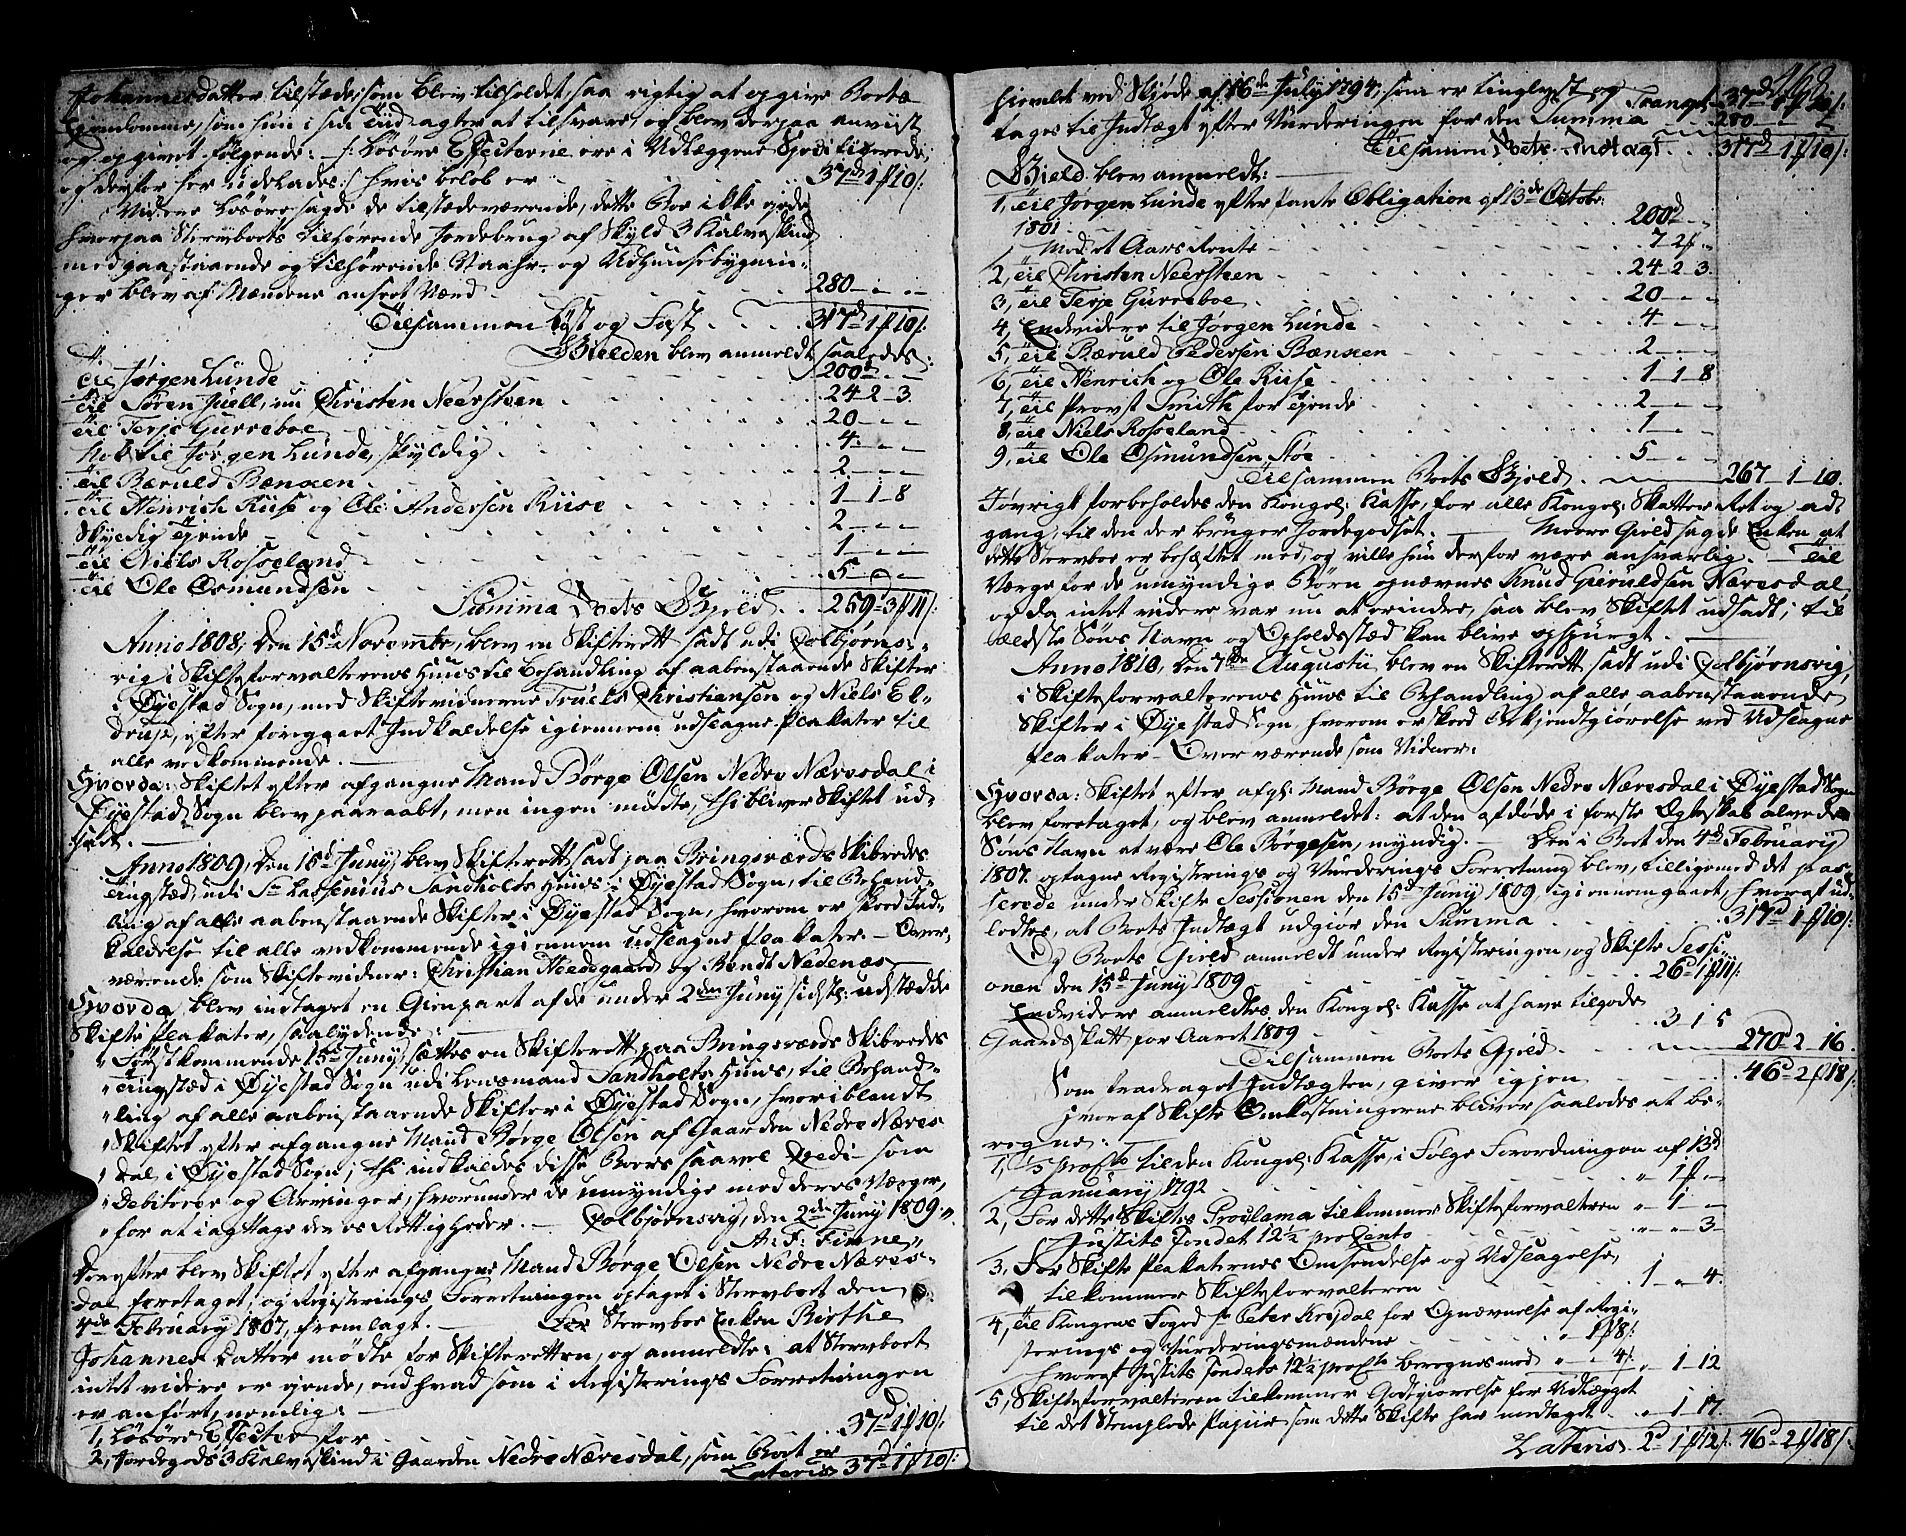 Johannesdatter tilstæde; som blev tilholdet, saa rigtig at opgive Boets
Ejendomme, som hun i sin Tiid agter at tilsvare, og blev derpaa anviist
og opgivet følgende: /: Løsøre Effecterne ere i Udlæggene Specificerede,
og derfor her udelades :/ hvis beløb er 37d 1 f 10 s:
Videre Løsøre sagde de tilstædeværende, dette Boe ikke ejede
hvorpaa Stervboets tilhørende Jordebrug af Skyld 3 Kalveskind
med paastaaende og tilhørende Vaahn- og Udhuusebygnin-
ger blev af Mændene anseet Værd 280 - " - "
Tilsammen Løst og Fast 317d 1 f 10 s:
Gielden blev anmeldt saaledes:
Til Jørgen Lunde 200d - -
Til Søren Juell, nu Christen Neersteen 24 - 2 - 3
Til Terje Gurreboe 20 - " - "
Nok til Jørgen Lunde, skyldig 4 - " - "
Til Bæruld Bænxen 2 - " - "
Til Hinrich Riise og Ole Andersen Riise 1 - 1 - 8
Skyldig Tjende 2 - " - "
Til Niels Rosseland 1 - " - "
Til Ole Osmundsen 5 - " - "
Summa Boets Gjeld 259d 3 f 11 s:
Anno 1808, den 15d Novembr, blev en Skifterett sadt udi Colbjørns-
vig i Skifteforvalterens Huus til Behandling af aabenstaaende Skifter
i Øyestad Sogn, med Skiftevidnerne Truels Christiansen og Niels El-
druse, efter foregaaet Indkaldelse igiennem udslagne Plakater til
alle vedkommende.
Hvorda: Skiftet efter afgangne Mand Børge Olsen Nedre Næresdal i
Øyestad Sogn blev paaraabt, men ingen mødte, thi bliver Skiftet ud-
sadt.
Anno 1809, den 15d Juny, blev Skifterett sadt paa Bringsværds Skibredes
Tingstæd, udi Sr Lassenius Sandholts Huus i Øyestad Sogn, til Behand-
ling af alle aabenstaaende Skifter i Øyestad Sogn, hvorom er skeed Ind-
kaldelse til alle vedkommende igiennem udslagne Plakater. - Over-
værende som Skiftevidner: Christian Heedegaard og Bendt Nedenæs
Hvorda blev indtaget en Gienpart af de under 2den Juny sidstl: udstædde
Skifte Plakater, saalydende:
"Førstkommende 15d Juny, sættes en Skifterett paa Bringsværds Skibredes
"Tingstæd i Øyestad Sogn udi Lensmand Sandholts Huus, til Behand-
"ling af alle aabenstaaende Skifter i Øyestad Sogn, hvoriblandt
"Skiftet efter afgangne Mand Børge Olsen af Gaarden Nedre Næres
"dal i Øyestad Sogn; thi indkaldes disse Boers saavel Credi- som
"Debitorer og Arvinger, hvorunder de umyndige med deres Værger,
"for at iagttage deres Rettigheder. - Colbjørnsvig, den 2de Juny 1809."
A: F: Finne"
Derefter blev Skiftet efter afgangne Mand Børge Olsen Nedre Næres-
dal foretaget, og Registerings Forretningen optaget i Stervboet den
4de February 1807, fremlagt. - For Stervboe Enken Birthe
Johannes datter mødte for Skifteretten, og anmeldte: at Stervboet
intet videre er ejende, end hvad som i Registerings Forretningen
er anført, nemlig:
1, Løsøre Effecter for 37d 1 f 10 s:
2, Jordegods 3 Kalveskind i Gaarden Nedre Næresdal, som Boet er
Lateris 37d 1 f 10 s:
468
hiemlet ved Skjøde af 16de July 1794; som er tinglyst og Transp: 37d 1 f 10 s:
tages til Indtægt efter Vurderingen for den Summa 280 - " - "
Tilsammen Boets Indtægt 317d 1 f 10 s:
Gield blev anmeldt:
1, Til Jørgen Lunde efter Pante Obligation af 13de Octobr:
1801 200d - -
Med et Aars Rente 7 2 f -
2, Til Christen Neersteen 24 - 2 - 3
3, Til Terje Gurreboe 20 - " - "
4, Endvidere til Jørgen Lunde 4 - " - "
5, Til Bæruld Pedersen Bænxen 2 - " - "
6, Til Hinrich og Ole Riise 1 - 1 - 8
7, Til Provst Smith for Tjende 2 - " - "
8, Til Niels Rosseland 1 - " - "
9, Til Ole Osmundsen Støe 5 - " - "
Tilsammen Boets Gjeld 267 - 1 - 10.
Iøvrigt forbeholdes den Kongel: Kasse, for alle Kongel: Skatter Ret og ad
gang, til den der bruger Jordegodset. - Meere Gield sagde Enken at
dette Stervboe er behæftet med, og ville hun derfor være ansvarlig. - Til
Værge for de umyndige Børn opnævnes Knud Gieruldsen Næresdal,
og da intet videre var nu at erindre, saa blev Skiftet udsadt, til
ældste Søns Navn og Opholdsstæd kan blive opspurgt.
Anno 1810, den 7de Augustii blev en Skifterett sadt udi Colbjørnsvig,
i Skifteforvalterens Huus til Behandling af alle aabenstaaende
Skifter i Øyestad Sogn, hvorom er skeed Bekjendtgiørelse ved Udslagne
Plakater. - Overværende som Vidner:
Hvorda: Skiftet efter afg: Mand Børge Olsen Nedre Næresdal i Øyestad Sogn
blev foretaget, og blev anmeldet: at den afdøde i første Ægteskab alvede
Søns Navn at være Ole Børgesen, myndig. - Den i Boet den 4d February
1807. optagne Registerings og Vurderings Forretning blev, tilligemed det pas-
serede under Skifte Sessionen den 15d Juny 1809 igiennemgaaet, hvoraf ud-
ledtes, at Boets Indtægt udgiør den Summa 317d 1 f 10 s:
Og Boets Gield anmeldt under Registeringen, og Skifte Sessi-
onen den 15d Juny 1809 267d 1 f 11 s:
Endvidere anmeldtes den Kongel: Kasse at have tilgode
Gaardskatt for Aaret 1809 3 1 5
Tilsammen Boets Gjeld 270 - 2 - 16
Som fradraget Indtægten, giver igjen 46d 2 f 18 s:
hvoraf Skifte Omkostningerne bliver saaledes at be-
regne:
1, 1/3 proCto til den Kongel: Kasse, i Følge Forordningen af 13d
January 1792 " 1 f "
2, For dette Skiftes Proclama tilkommer Skifteforvalteren " - 1 - "
Justits Fondet 12½ proCento " - " - 3
3, For Skifte Plakaternes Omsendelse og Udslagelse,
tilkommer Skifteforvalteren 1 - " - 4.
4, Til Kongens Foged Sr Peter Krejdal for Opnævnelse af Regi-
sterings og Vurderingsmændene " 1 f 8 s:
hvoraf Justits Fondets 12½ proCto beregnes med " - " 4 s: " 1 - 12
5, Skifteforvalteren tilkommer Godtgiørelse for Udlægget
til det Stemplede Papiir som dette Skifte har medtaget " 1 - 17.
Lateris 2d 1 f 12 s: 46d 2 f 18 s: